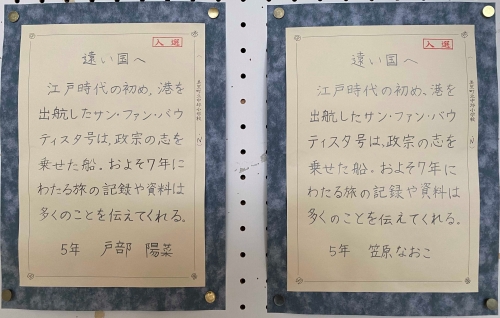 入選
遠い国へ
江戸時代の初め、港を
出航したサン・ファン・バウ
ティスタ号は、政宗の志を
乗せた船。およそ7年に
わたる旅の記録や資料は
多くのことを伝えてくれる。
5年 戸部 陽菜
入選
遠い国へ
江戸時代の初め、港を
出航したサン・ファン・バウ
ティスタ号は、政宗の志を
乗せた船。およそ7年に
わたる旅の記録や資料は
多くのことを伝えてくれる。
5年 笠原なおこ